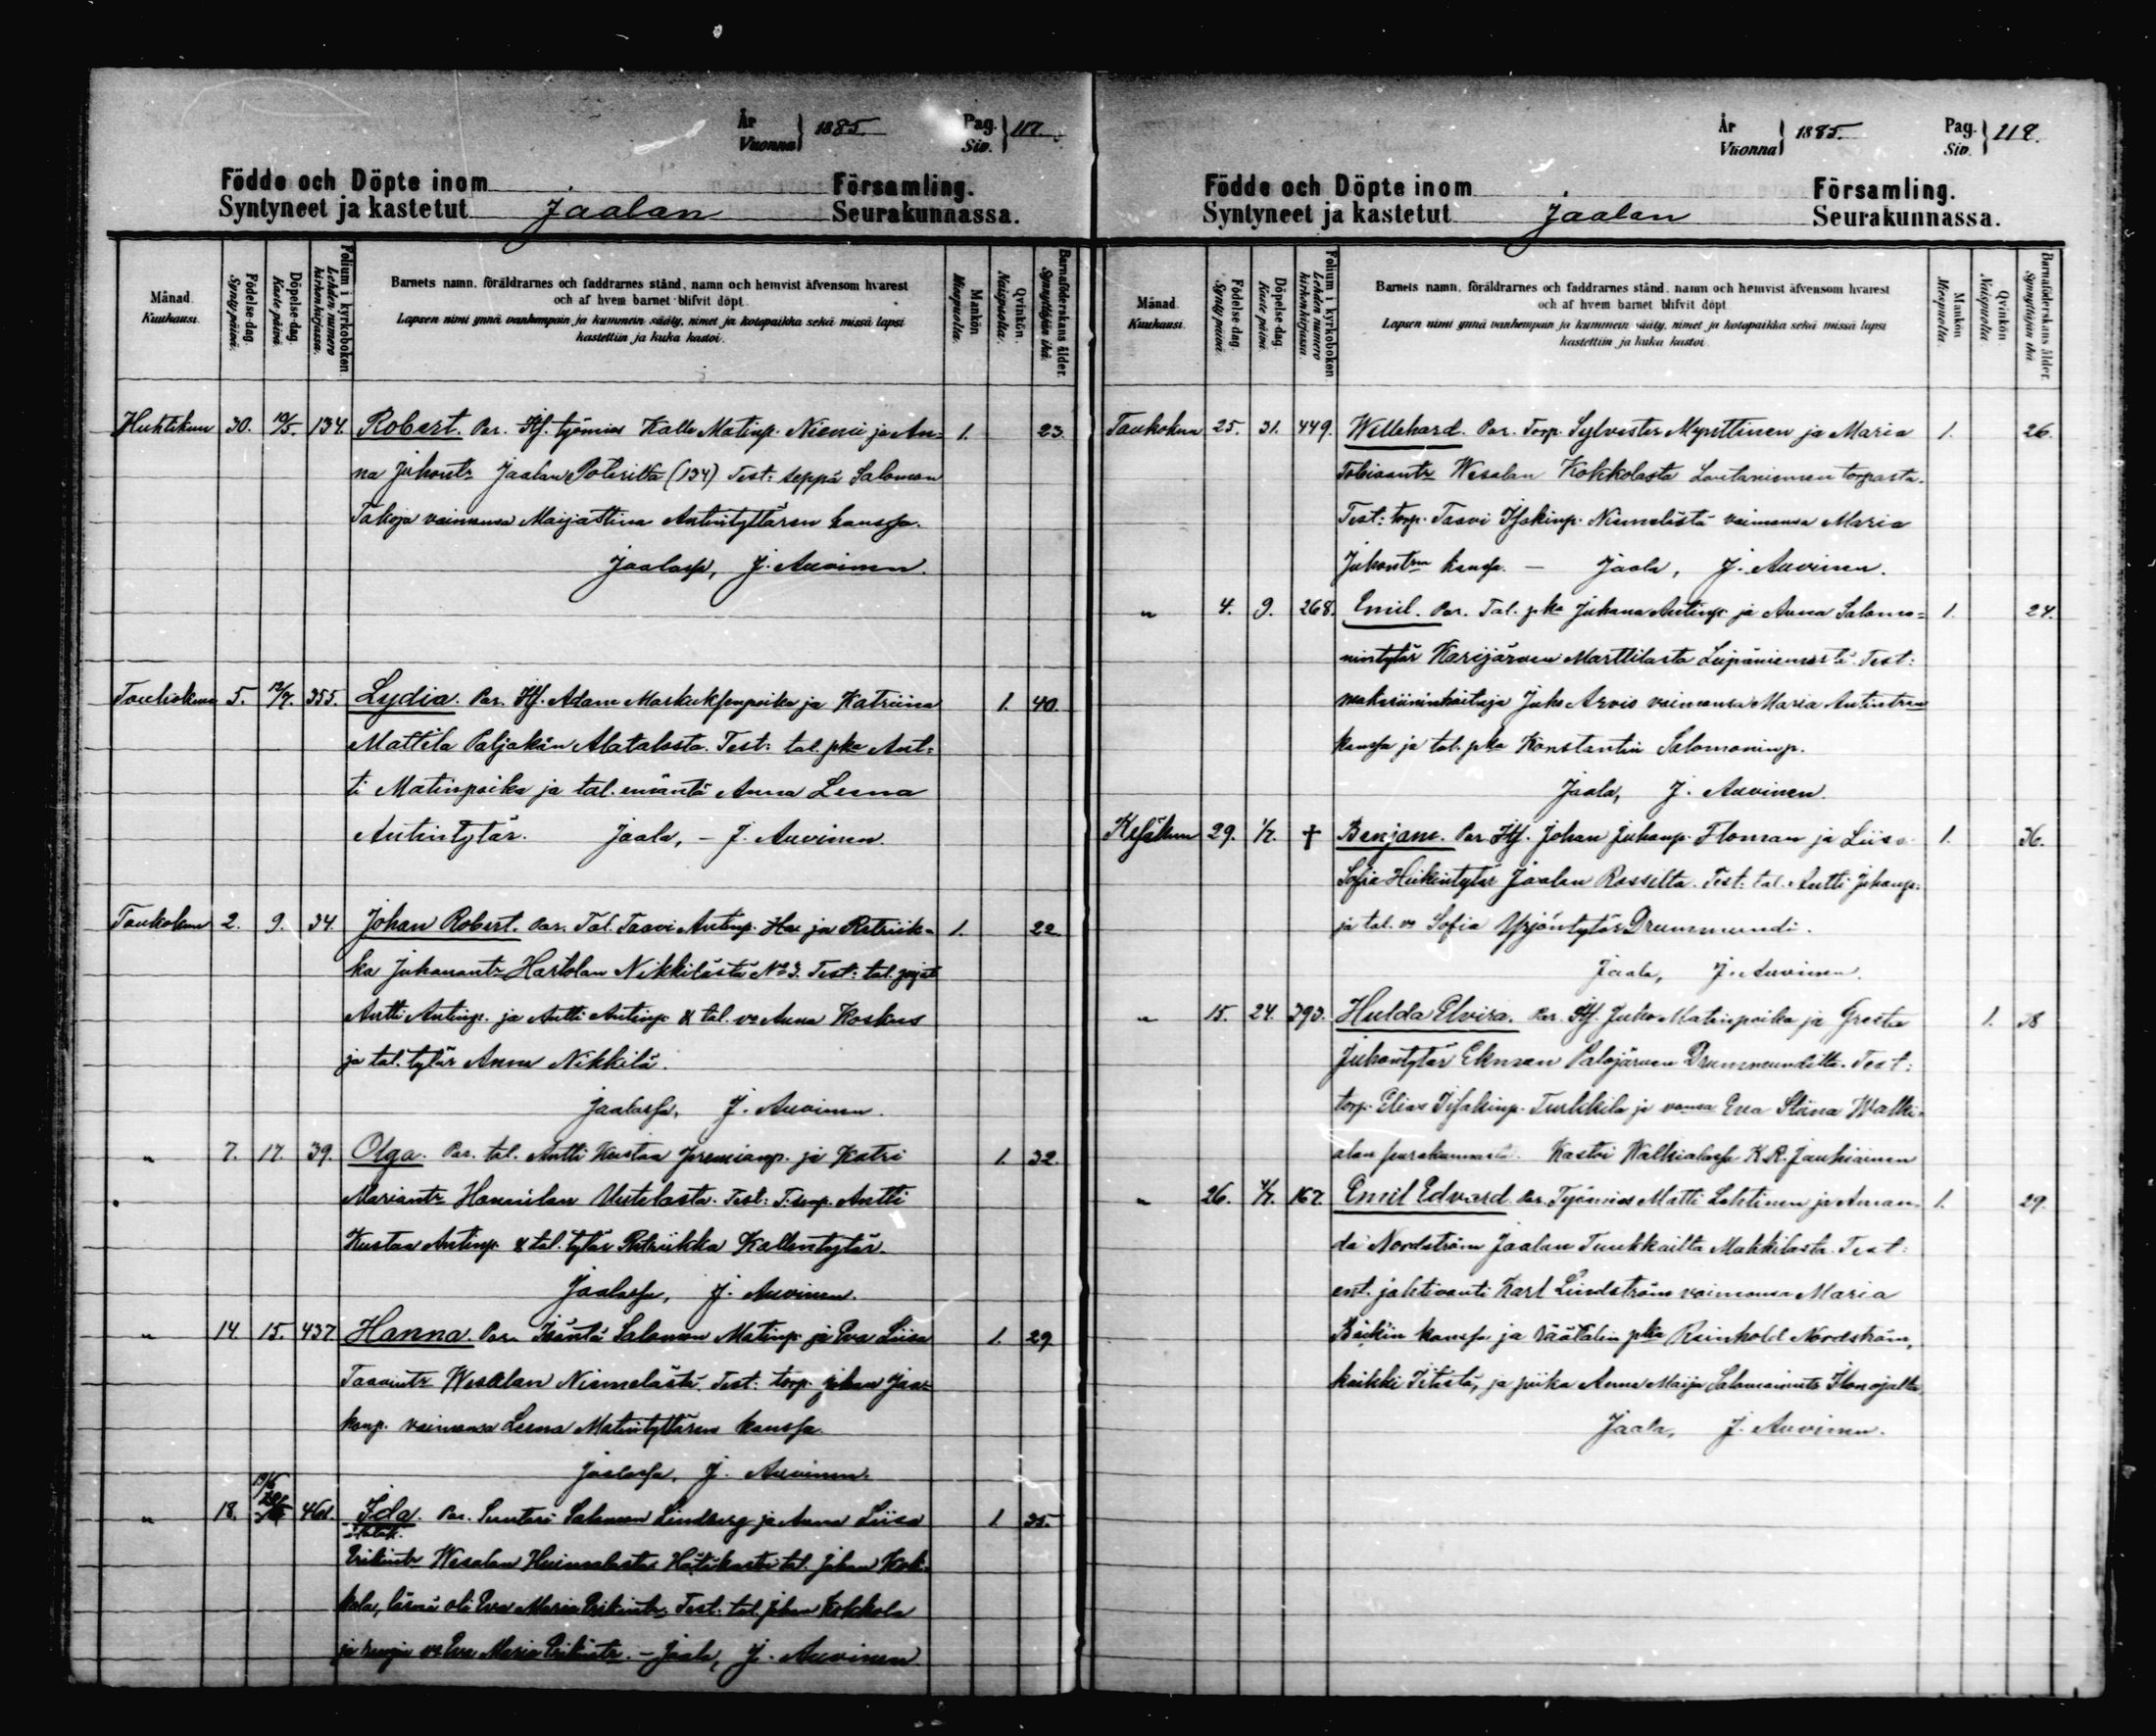 År
Vuonna } 1885. Pag.
Siv. } 117.
Födde och Döpte inom Församling.
Syntyneet ja kastetut Jaalan Seurakunnassa.
Månad.
Kuukausi.
Födelse-dag.
Synty päivä.
Döpelse-dag.
Kaste päivä.
Folium i kyrkoboken
Lehden numero
kirkonkirjassa.
Barnets namn, föräldrarnes och faddrarnes stånd, namn och hemvist äfvensom hvarest
och af hvem barnet blifvit döpt.
Lapsen nimi ynnä vanhempain ja kummein sääty, nimet ja kotopaikka sekä missä lapsi
kastettiin ja kuka kastoi.
Mankön
Miespuolta.
Qvinkön.
Naispuolta.
Barnaföderskans ålder.
Synnyttäjän ikä.
Huhtikuu 30. 10/5. 134. Robert. Par. Itf. työmies Kalle Matinp. Niemi ja An= 1. 23.
na Juhontr Jaalan (134) Test: seppä Salomon
Takoja vaimonsa Maijastina Antintyttären kanssa.
Jaalassa, J. Auvinen.
Toukokuu 5. 355. Lydia. Par. Itf. Adam ja Katriina 1. 40.
Mattila Paljakan Alatalosta. Test: tal. pka Ant=
ti Matinpoika ja tal. emäntä Anna Leena
Antintytär. Jaala, – J. Auvinen.
Toukokuu 2. 9. 34. Johan Robert. Par. Tal. Taavi Antinp. ja Retriik= 1. 22.
ka Juhanantr Hartolan Nikkilästä No 3. Test: tal. pojat
Antti Antinp. ja Antti Antinp. & tal. vo Anna Koskus
ja tal. tytär Anna Nikkilä.
Jaalassa, J. Auvinen.
" 7. 17. 39. Olga. Par. tal. Antti Kustaa Jeremianp. ja Katri 1. 32.
Mariantr Honnilan Uutelasta. Test: Antti
Kustaa Antinp. & tal. tytär Retriikka Kallentytär.
Jaalassa, J. Auvinen.
" 14. 15. 437 Hanna. Par. Isäntä Salomon Matinp. ja Eva Liisa 1. 29
Taavintr Wesalan Niemelästä. Test: torp. Johan Jaa=
konp. vaimonsa Leena Matintyttären kanssa.
Jaalassa, J. Auvinen.
" 18. 461. Ida. Par. Suutari Salomon Lindberg ja Anna Liisa 1. 35.
Erikintr Wesalan Hätäkastoi tal. Johan Kok=
kola, läsnä oli Eva Maria Erikintr. Test: tal. Johan Kokkola
ja vo Eva Maria Erikintr. – Jaala, J. Auvinen
År
Vuonna } 1885. Pag.
Siv. } 118.
Födde och Döpte inom Församling.
Syntyneet ja kastetut Jaalan Seurakunnassa.
Månad.
Kuukausi.
Födelse-dag.
Synty päivä.
Döpelse-dag.
Kaste päivä.
Folium i kyrkoboken
Lehden numero
kirkonkirjassa.
Barnets namn, föräldrarnes och faddrarnes stånd, namn och hemvist äfvensom hvarest
och af hvem barnet blifvit döpt.
Lapsen nimi ynnä vanhempain ja kummein sääty, nimet ja kotopaikka sekä missä lapsi
kastettiin ja kuka kastoi.
Mankön
Miespuolta.
Qvinkön
Naispuolta.
Barnaföderskans ålder.
Synnyttäjän ikä.
Toukokuu 25. 31. 449. Willehard. Par. Torp. Sylvester Mynttinen ja Maria 1. 26.
Tobiaantr Wesalan Kokkolasta Lautaniemen torpasta.
Test: torp. Taavi Isakinp. Niemelästä vaimonsa Maria
Juhontrn kanssa. – Jaala, J. Auvinen.
" 4. 9. 268. Emil. Par. Tal. pka Juhana Antinp. ja Anna Salomo= 1. 24.
nintytär Karijärven Marttilasta Test:
makasiininhoitaja Juho Arvio vaimonsa Maria Antintren
kanssa ja tal. pka Konstantin Salomoninp.
Jaala, J. Auvinen.
Kesäkuu 29. 1/7. † Benjam. Par. Itf. Johan Juhanp. Floman ja Liisa 1. 36.
Sofia Heikintytär Jaalan Rossilta. Test: tal. Antti Juhanp.
ja tal. vo Sofia Yrjöntytär Drummundi.
Jaala, J. Auvinen.
" 15. 24. 393. Hulda Elvira. Par. Itf. Juho Matinpoika ja Greeta 1. 38
Juhontytär Ekman Palojärven Drummundilta. Test:
torp. Elias Isakinp. Turkkila ja vamsa Eva Stiina Walki=
alan seurakunnasta. Kastoi Walkialassa K. R. Jauhiainen
" 26. 4/7. 167. Emil Edvard. Par. Työmies Matti Lehtinen ja Aman= 1. 29.
da Nordström Jaalan Tuukkailta Makkilasta. Test:
ent. jahtivouti Karl Lindström vaimonsa Maria
kanssa ja räätälin pka Reinhold Nordström,
kaikki Iitistä, ja piika Anna Maija
Jaala, J. Auvinen.